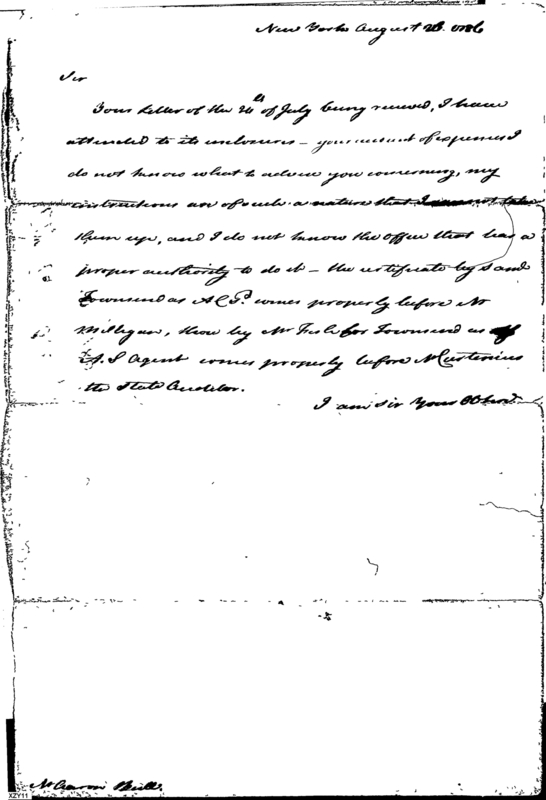 New York August 26. 1786
Sir
Your Letter of the 24th of July being received, I have
attended to its inclosures – your account of expences I
do not know what to advise you concerning, my
instructions are of such a nature that I can not take
them up, and I do not know the officer that has a
proper authority to do it – the certificate by Sand
Townsend as ACPd. comes properly before Mr
Milligan, those by Mr for Townsend as
A. S Agent comes properly before Mr Curtenius
the State Auditor.
I am Sir Your Obsvt.
Mr
XZY11